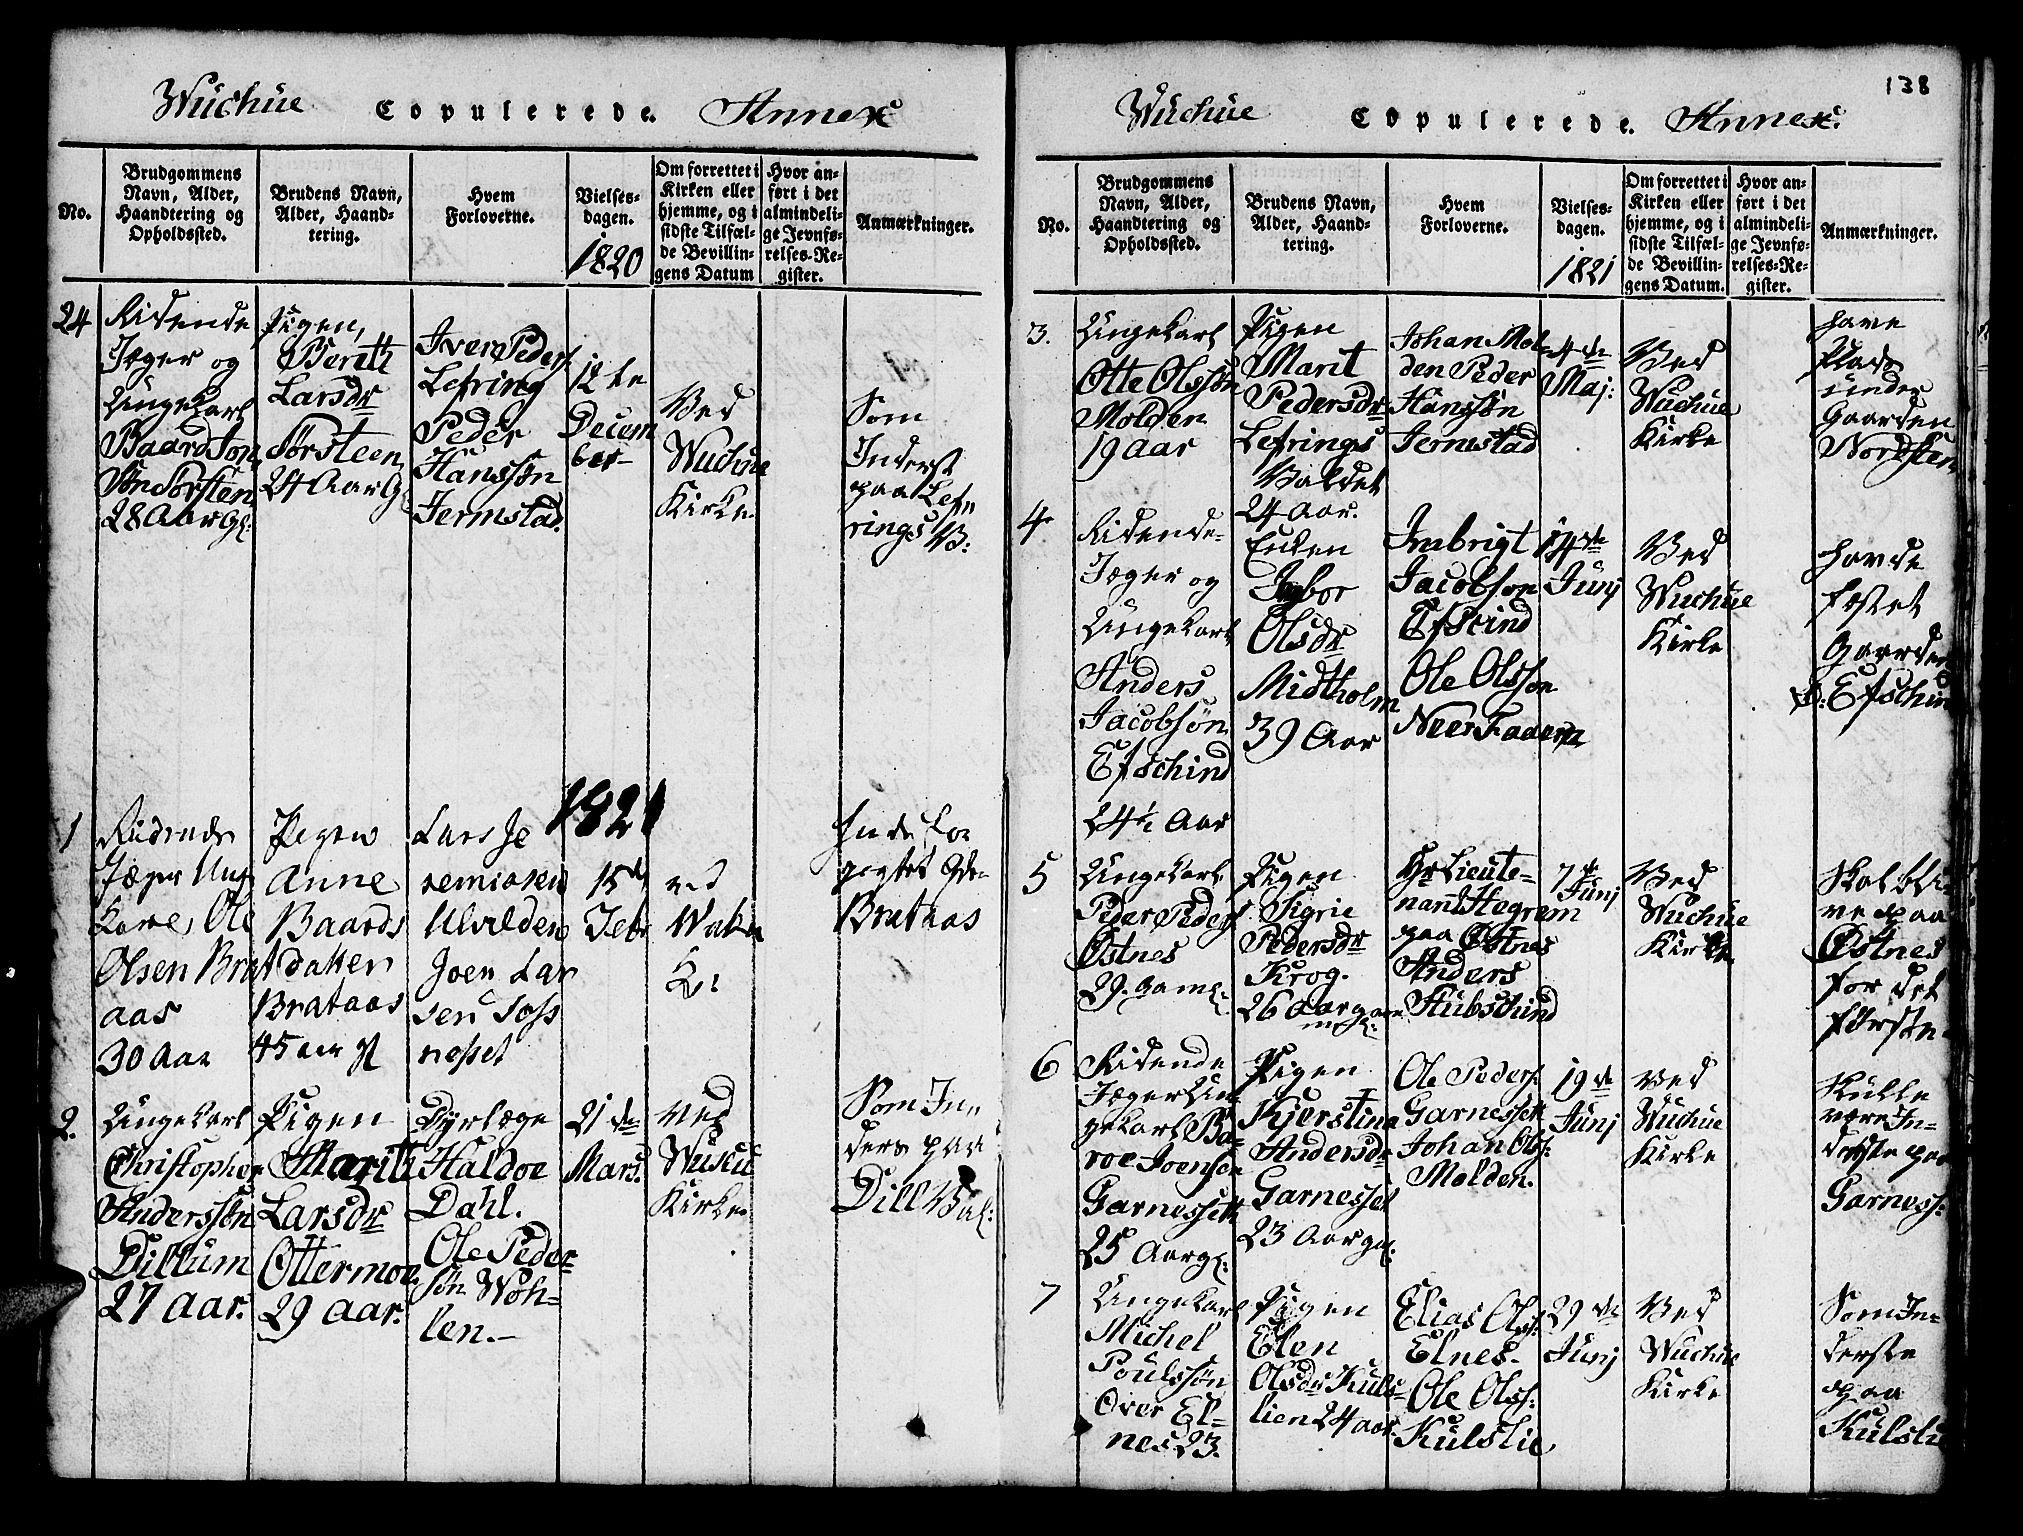 Wuchue Copulerede. Annex
No.
Brudgommens
Navn, Alder,
Haandtering og
Opholdssted.
Brudens Navn,
Alder, Haand-
tering.
Hvem
Forloverne.
Vielses-
dagen.
1820
Om forrettet i
Kirken eller
hjemme, og i
sidste Tilfæl-
de Bevillin-
gens Datum
Hvor an-
ført i det
almindeli-
ge Jevnfø-
relses-Re-
gister.
Anmærkninger.
24
Ridende
Jæger og
Ungekarl
Baard Jon
Søn Sørsten
28 Aar Gl:
Pigen,
Berith
Larsdr
Sørsteen
24 Aar G:
Iver Peders
Lefring
Peder
Hanssøn
Jermstad.
12te
Decem
ber
Ved
Wuchue
Kirke.
Som
Inderst
paa Lef-
rings V:
1821
1
Ridende
Jæger Ung
Karl Ole
Olsen Brat
aas
30 Aar
Pigen
Anne
Baards
datter
Brataas
45 aar gl
Lars Je
remiasen
Ulvilden
Joen Lar
sen Soss
nesset
15d
Febr
ved
Wuku
K:
Brataas
2.
Ungekarl
Christopher
Anderssøn
Dillum
27 Aar.
Pigen
Marith
Larsdr
Ottermoe
29 Aar.
Dyrlæge
Haldoe
Dahl.
Ole Peder
søn Woh-
len.-
21de
Mars.
ved
Wuscu
Kirke.
Som In-
ders paa
Dill Val:
138
Wuchue Copulerede. Annex.
No.
Brudgommens
Navn, Alder,
Haandtering og
Opholdssted.
Brudens Navn,
Alder, Haand-
tering.
Hvem
Forloverne.
Vielses-
dagen.
1821
Om forrettet i
Kirken eller
hjemme, og i
sidste Tilfæl-
de Bevillin-
gens Datum.
Hvor an-
ført i det
almindeli-
ge Jevnfø-
relses-Re-
gister.
Anmærkninger.
3.
Ungekarl
Otte Olssøn
Molden
19 Aar
Pigen
Marit
Pedersdr
Lefrings
Valdet
24 Aar.
Johan Mol-
den Peder
Hanssøn
Jermstad
4de
Maj:
Ved
Wuchue
Kirke
have
Plads
under
Gaarden
Nordsten
4
Ridende
Jæger og
Ungekarl
Anders
Jacobsøn
Efschind
24½ Aar
Enken
Olsdr
Midtholm
39 Aar
Imbrigt
Jacobsøn
Efscind
Ole Olssøn
Neer Faaern
14de
Junj
Ved
Wuchue
Kirke
havde
fæstet
Gaarden
Efschind
5
Ungekarl
Peder Peders
Østnes
29. gaml.
Pigen
Sigrie
Pedersdr
Krog.
26 Aar ga
ml:
Hr Lieute-
nant Hegrem
paa Østnes
Anders
Stubschind
7de
Junj
Ved
Wuchue
Kirke
Skal bli-
ve paa
Østnes
for det
første.
6
Ridende
Jæger Un-
gekarl Ba-
roe Joensen
Garnessett
25 Aar gl:
Pigen
Kjerstina
Andersdr
Garnesset
23 Aar gl:
Ole Peders:
Garnessett
Johan Ols:
Molden.
19de
Junj
Ved
Wuchue
Kirke
Skulle
være In-
derste paa
Garness:
7
Ungekarl
Michel
Poulssøn
Over El-
nes 23.
Pigen
Elen
Olsdr Kuls-
lien 24 aar:
Elias Ols:
Elnes.
Ole Ols:
Kulslie
29de
Junj
Ved
Wuchue
Kirke
Som In-
derste
paa
Kulslie